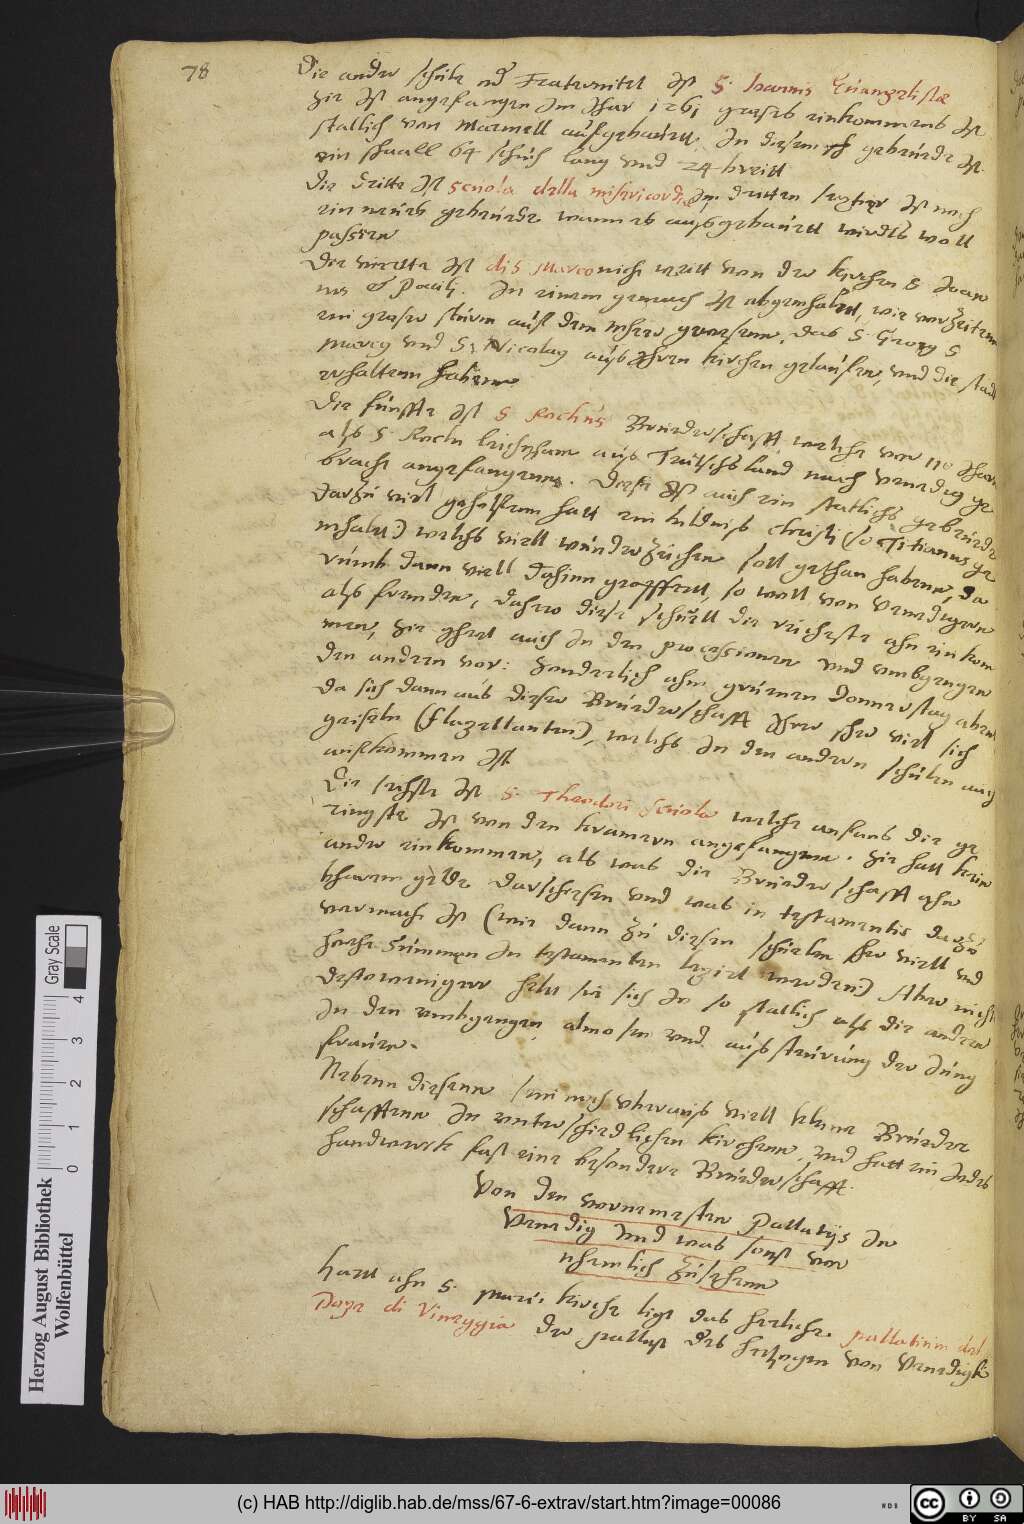 78
Die ander schüle od Fraternitet Ist S. Ioannis Euangelistæ
Hie Ist angefangen Im Ihar 1261 groses einkommens Ist
statlich von Marmell aufgebauett, In diesem gebeude Ist
ein saall 64 schuch lang und 24 breitt
Die dritte Ist scuola della misericordia Im dritten sestier Ist noch
ein neues gebeude wann es aussgebauett wirdts woll
passiren
Die vierdte Ist dis Marco nich weitt von der kirchen S Ioan
nis & Pauli. In einem gemach Ist abgemhalett, wie vorzeiten
ein groser sturm auff dem mher gewesenn, das S. Georg S
Marcg und S. Nicolay auss Ihren kirchen gelauffen, und die stadt
erhaltenn habenn
Die fünffte Ist S Rochus Bruederschafft welche vor 110 Iharen
als S. Rochi leichnam aus Teutschland nach Venedig ge
bracht angefangenn. Diess Ist auch ein statlichs gebeude
darzu viel geholffenn hatt ein bildnis Christi (so Titianus ge
mhalet) welchs viell wunderzeichen soll gethan habenn, da
rumb dann viell dahinn geopffertt, so woll von Venedigern
als frembden, daher diese schuell die reicheste ahn einkom
men, Hie ghet auch In den processionen und umbgengen
den andern vor: sonderlich ahm gruenen Donnerstag abent
da sich dann aus dieser Bruederschafft Iher sher viel sich
geiseln (flagellanten), welchs In den andern schulen auch
auffkommen Ist
Die sechste Ist S. Theodori scuola welche anfangs die ge
ringste Ist von den kramern angefangenn. Hie hatt kein
ander einkommen, als was die Bruederschafft ahn
bharem gelde darschiessen und was in testamentis darzu
vermacht Ist (wie dann zu diesen schuelen sher viell und
hoche Summen In testamenten legirt werden) Aber nichts
destoweniger helt sie sich In so statlich als die andern
In den umbgengen, almosen und ausssteurung der Jung
frauen.
Nebenn diesenn sein noch uberauss viell kleine Brueder
schafftenn In unterschiedlichen kirchenn, und hatt ein Jedes
handtwerck fast eine besondere Bruederschafft.
Von den vornemesten Pallatijs In
Venedig und was sonst vor
nhemlich zu sehenn
Hart ahn S. Marci kirche ligt das herliche pallatium del
Doge di Vineggia der pallast des hertzogen von Venedigk
Herzog August Bibliothek
Wolfenbüttel
Gray Scale
0 1 2 3 4
(c) HAB http://diglib.hab.de/mss/67-6-extrav/start.htm?image=00086
WDB
cc BY SA